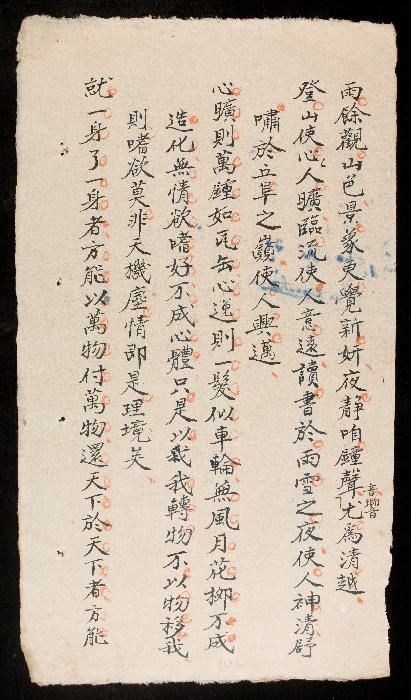 雨餘觀山色景象更覺新妍夜靜咱鐘聲音響尤爲清越
登山使心人曠臨流使人意遠讀書於雨雪之夜使人神清舒
嘯於丘阜之巔使人興邁
心曠則萬鐘如瓦缶心逸則一髮似車輪無風月花柳不成
造化無情欲嗜好不成心體只是以我轉物不以物移我
則嗜欲莫非天機塵情即是理境矣
就一身了一身者方能以萬物付萬物還天下於天下者方能